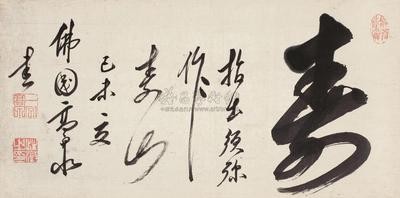 壽
指出須弥
作
壽山
己未夏
佛國高泉
書